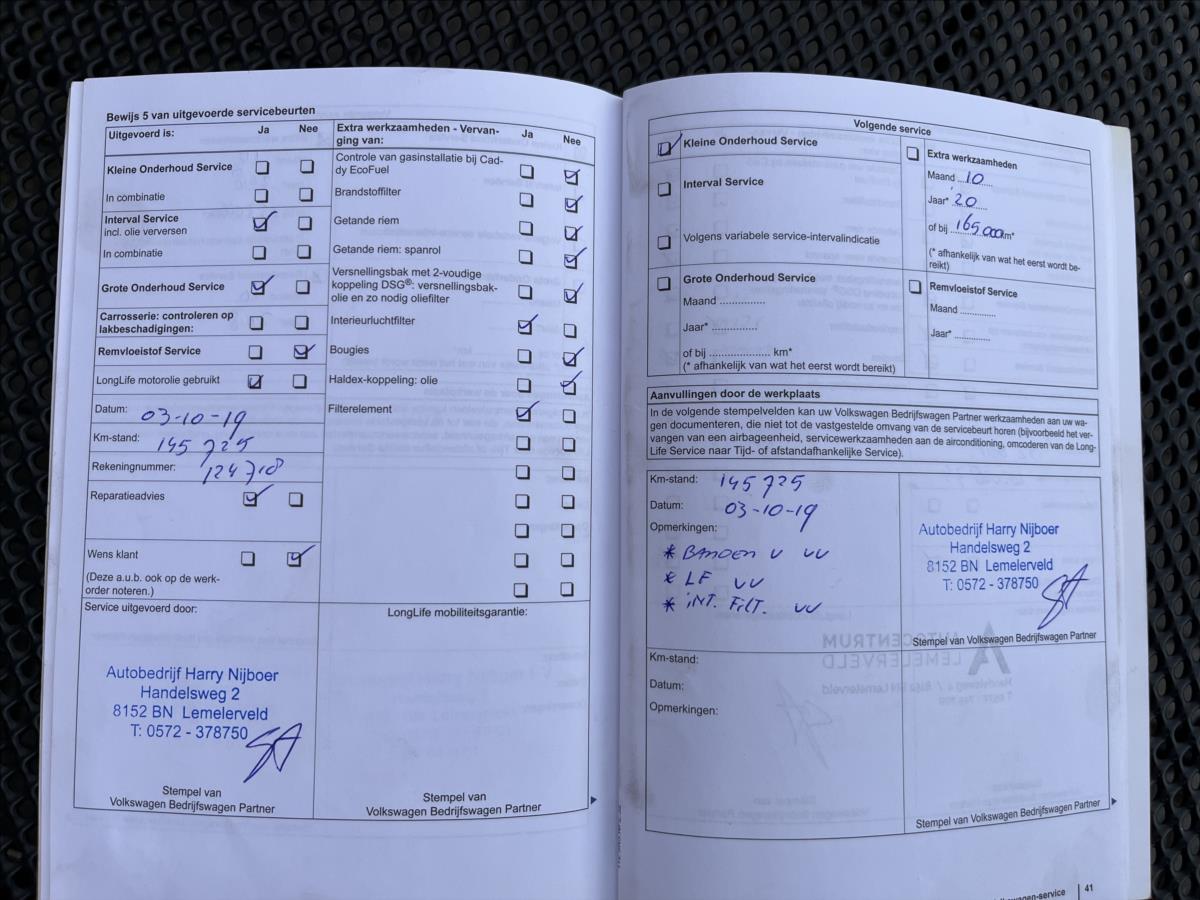 Bewijs 5 van uitgevoerde servicebeurten
Uitgevoerd is: Ja Nee
Kleine Onderhoud Service
In combinatie
Interval Service
incl. olie verversen
In combinatie
Grote Onderhoud Service
Carrosserie: controleren op
lakbeschadigingen:
Remvloeistof Service
LongLife motorolie gebruikt
Datum: 03-10-19
Km-stand: 145 725
Rekeningnummer: 124710
Reparatieadvies
Wens klant
(Deze a.u.b. ook op de werk-
order noteren.)
Extra werkzaamheden - Vervan-
ging van: Ja Nee
Controle van gasinstallatie bij Cad-
dy EcoFuel
Brandstoffilter
Getande riem
Getande riem: spanrol
Versnellingsbak met 2-voudige
koppeling DSG®: versnellingsbak-
olie en zo nodig oliefilter
Interieurluchtfilter
Bougies
Haldex-koppeling: olie
Filterelement
Service uitgevoerd door:
Autobedrijf Harry Nijboer
Handelsweg 2
8152 BN Lemelerveld
T: 0572 - 378750
Stempel van
Volkswagen Bedrijfswagen Partner
LongLife mobiliteitsgarantie:
Stempel van
Volkswagen Bedrijfswagen Partner
Volgende service
Kleine Onderhoud Service
Interval Service
Volgens variabele service-intervalindicatie
Extra werkzaamheden
Maand 10
Jaar* 20
of bij 165000 km*
(* afhankelijk van wat het eerst wordt be-
reikt)
Grote Onderhoud Service
Maand ...............
Jaar* ...............
of bij .................... km*
(* afhankelijk van wat het eerst wordt bereikt)
Remvloeistof Service
Maand ............
Jaar* ............
Aanvullingen door de werkplaats
In de volgende stempelvelden kan uw Volkswagen Bedrijfswagen Partner werkzaamheden aan uw wa-
gen documenteren, die niet tot de vastgestelde omvang van de servicebeurt horen (bijvoorbeeld het ver-
vangen van een airbageenheid, servicewerkzaamheden aan de airconditioning, omcoderen van de Long-
Life Service naar Tijd- of afstandafhankelijke Service).
Km-stand: 145725
Datum: 03-10-19
Opmerkingen:
* BANDEN V VV
* LF VV
* INT. FILT. VV
Autobedrijf Harry Nijboer
Handelsweg 2
8152 BN Lemelerveld
T: 0572 - 378750
Stempel van Volkswagen Bedrijfswagen Partner
Km-stand:
Datum:
Opmerkingen:
Stempel van Volkswagen Bedrijfswagen Partner
41